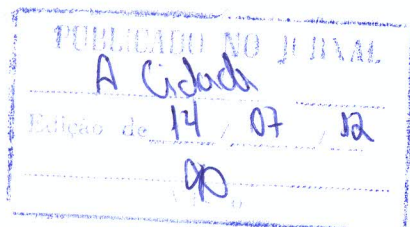 PUBLICADO NO JORNAL
A Cidade
Edição de 14 / 07 / 12